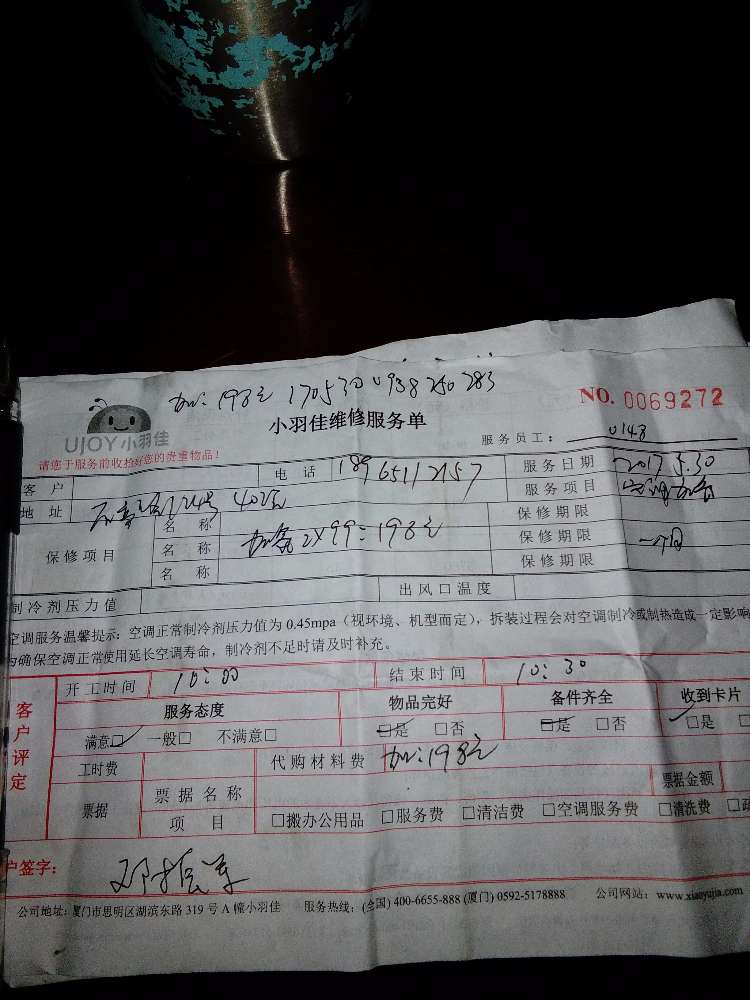 加：198元 1705300938250283
UJOY 小羽佳
小羽佳维修服务单
NO. 0069272
服务员工： 0148
请您于服务前收拾好您的贵重物品！
客户 电话 18965112157 服务日期 2017.5.30
地址 402室 服务项目
保修项目 名称 保修期限
名称 加氟2X99=198元 保修期限 一个月
名称 保修期限
制冷剂压力值 出风口温度
空调服务温馨提示：空调正常制冷剂压力值为 0.45mpa（视环境、机型而定），拆装过程会对空调制冷或制热造成一定影响
为确保空调正常使用延长空调寿命，制冷剂不足时请及时补充。
客户评定
开工时间 10：00 结束时间 10：30
服务态度 物品完好 备件齐全 收到卡片
满意□ 一般□ 不满意□ □是 □否 □是 □否 □是 □
工时费 代购材料费 加：198元
票据 票据名称 票据金额
项目 □搬办公用品 □服务费 □清洁费 □空调服务费 □清洗费
户签字：
公司地址：厦门市思明区湖滨东路 319 号 A 幢小羽佳 服务热线：(全国) 400-6655-888 (厦门) 0592-5178888 公司网站：www.xiaoyujia.com